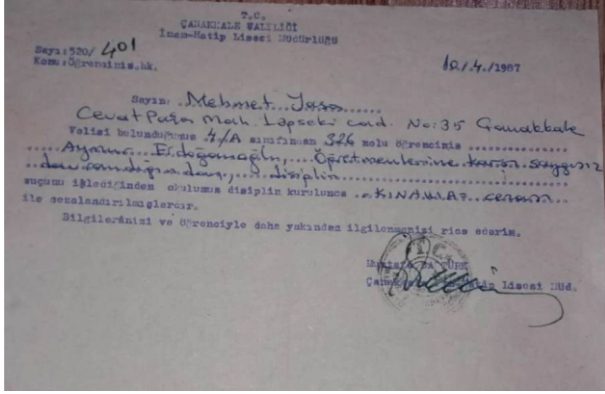 T.C.
ÇANAKKALE VALİLİĞİ
İmam-Hatip Lisesi Müdürlüğü
Sayı:520/ 401
Konu:Öğrencinin.hk. 10./.4./1987
Sayın: ..Mehmet
Cevat Paşa Mah. Lapseki Cad. No:35 Çanakkale
Velisi bulunduğunuz 4/A sınıfından 326 nolu öğrenciniz
Aynur Öğretmenlerine karşı saygısız
disiplin
suçunu işlediğinden okulumuz disiplin kurulunca ..KINAMA.. cezası
ile cezalandırılmışlardır.
Bilgilerinizi ve öğrenciyle daha yakından ilgilenmenizi rica ederim.
T.C.
Lisesi Müd.